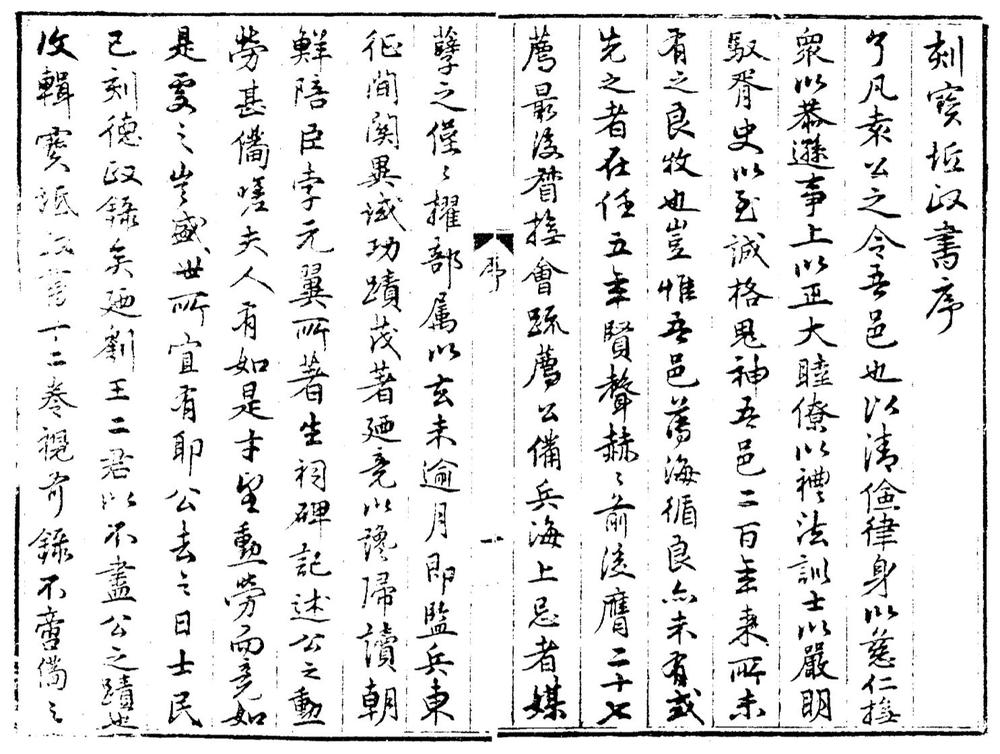 刻寶坻政書序
了凡袁公之令吾邑也以清儉律身以慈仁撫
衆以恭遜事上以正大睦僚以禮法訓士以嚴明
馭胥史以至誠格鬼神吾邑二百年來所未
有之良牧也豈惟吾邑薄海循良亦未有或
先之者在任五年賢聲赫〻前後膺二十七
薦最後督撫會疏薦公備兵海上忌者媒
序
一
孽之僅〻擢部属以去未逾月即監兵東
征間関異域功蹟茂著廼竟以讒帰讀朝
鮮陪臣李元翼所著生祠碑記述公之勳
勞甚備嗟夫人有如是才望勳勞而竟如
是受之豈盛世所宜有耶公去之日士民
已刻德政錄矣廼劉王二君以不盡公之蹟也
改輯寶坻政書十二卷視前錄不啻備之